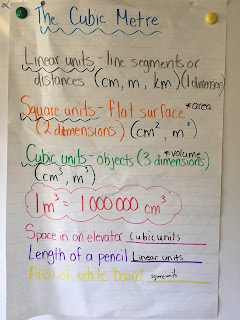 The Cubic Metre
Linear units - line segments or
distances (cm, m, km) (1 dimension)
Square units - flat surface *area
(2 dimensions) (cm², m²)
Cubic units - objects (3 dimensions) *volume
(cm³, m³)
1m³ = 1 000 000 cm³
Space in an elevator cubic units
Length of a pencil Linear units
Area of white board square units